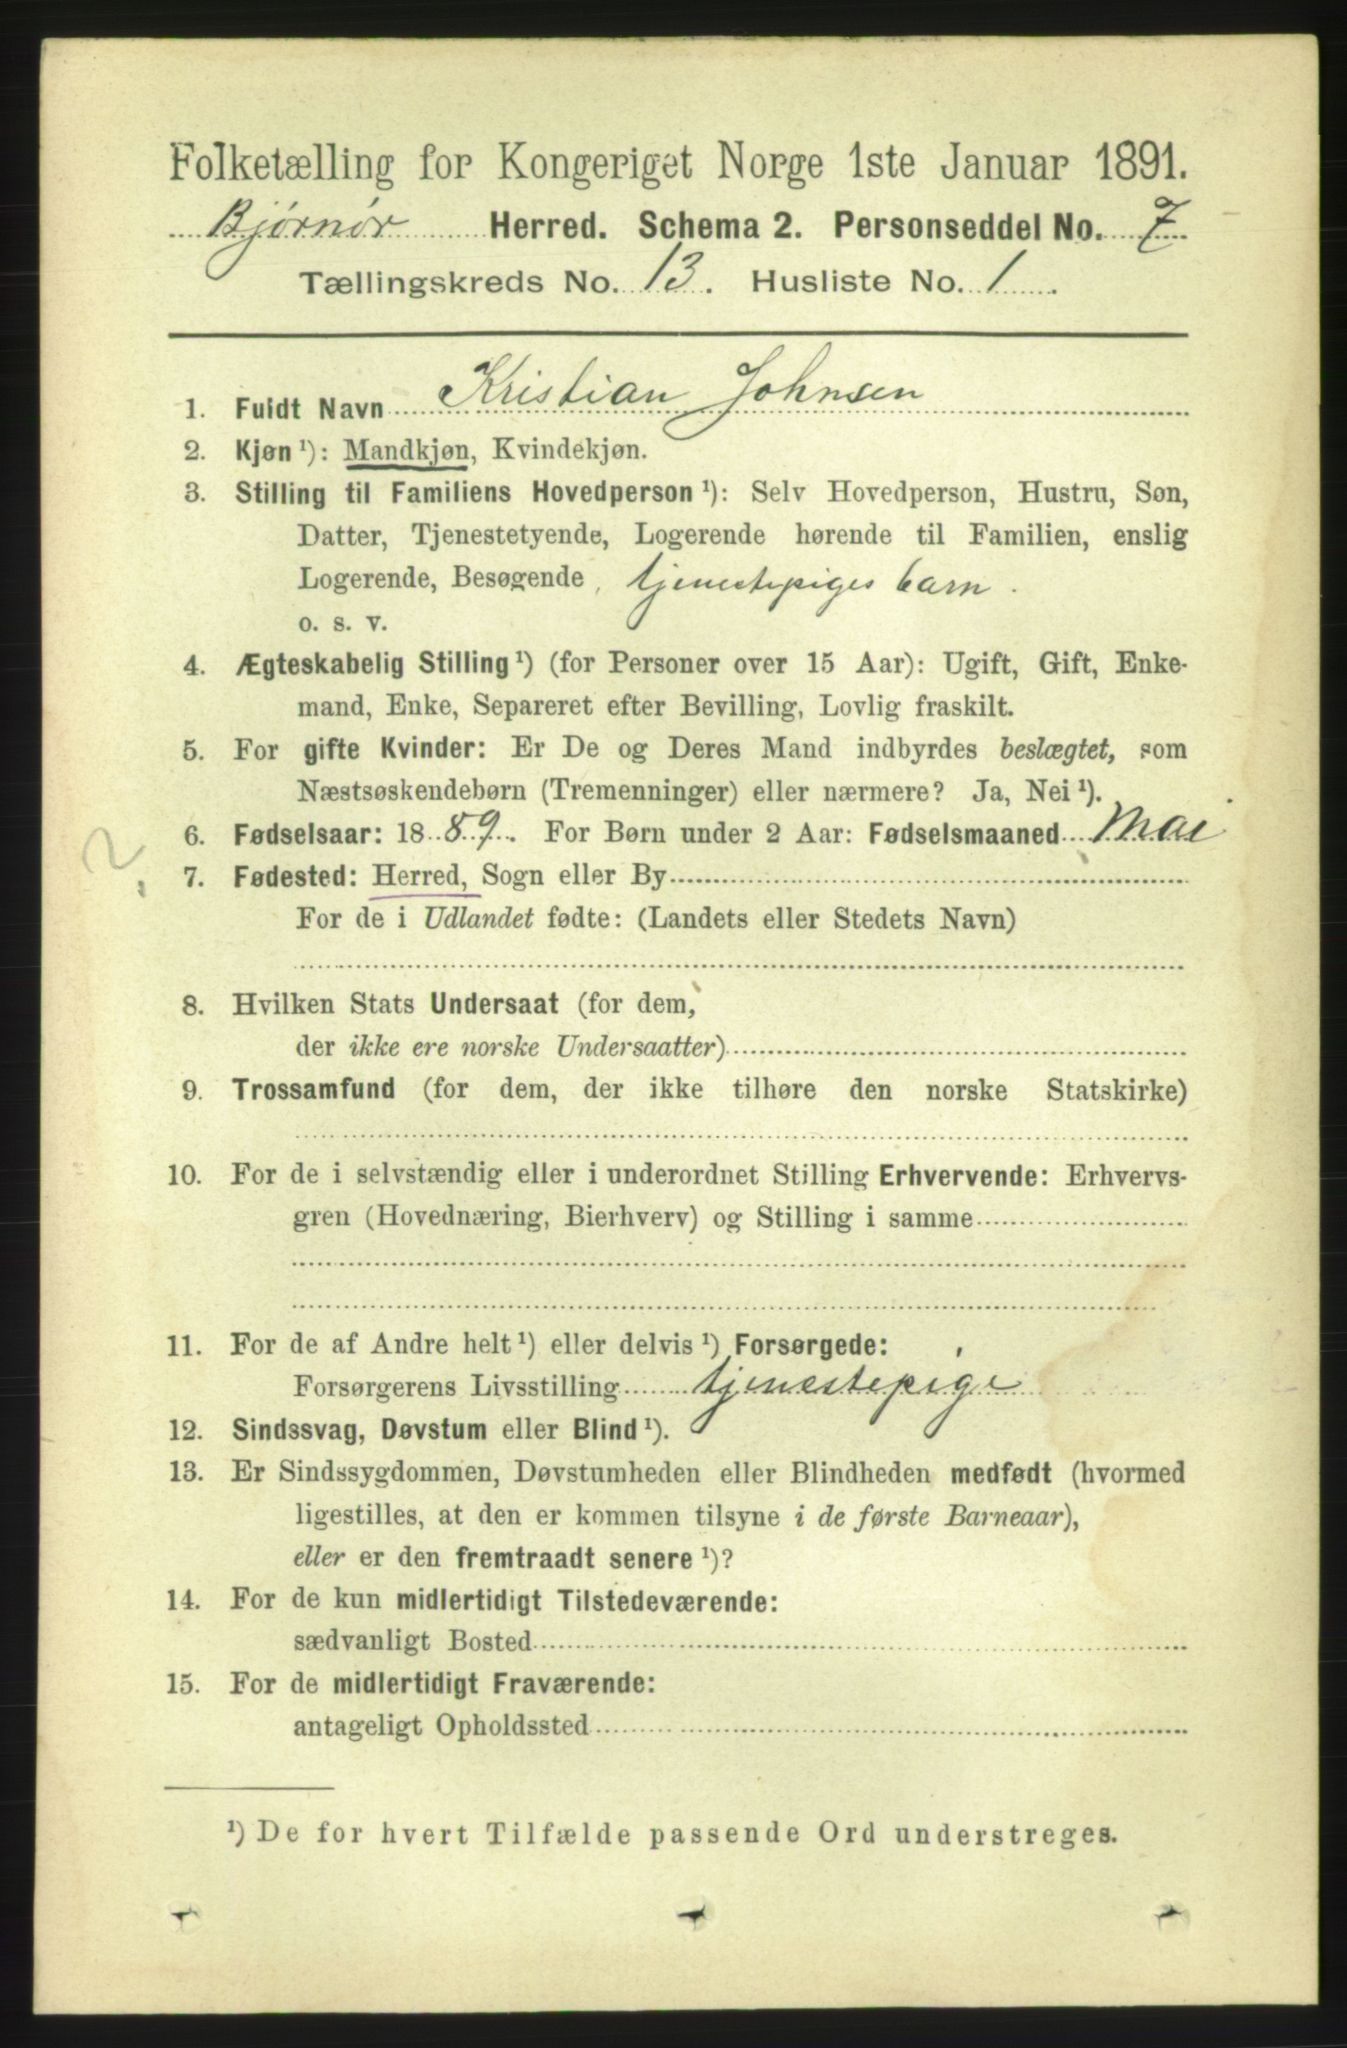 Folketælling for Kongeriget Norge 1ste Januar 1891.
Bjørnør Herred. Schema 2. Personseddel No. 7
Tællingskreds No. 13. Husliste No. 1.
1. Fuldt Navn Kristian Johnsen
2. Kjøn ¹): Mandkjøn, Kvindekjøn.
3. Stilling til Familiens Hovedperson ¹): Selv Hovedperson, Hustru, Søn,
Datter, Tjenestetyende, Logerende hørende til Familien, enslig
Logerende, Besøgende, tjenestepiges barn.
o. s. v.
4. Ægteskabelig Stilling ¹) (for Personer over 15 Aar): Ugift, Gift, Enke-
mand, Enke, Separeret efter Bevilling, Lovlig fraskilt.
5. For gifte Kvinder: Er De og Deres Mand indbyrdes beslægtet, som
Næstsøskendebørn (Tremenninger) eller nærmere? Ja, Nei ¹).
6. Fødselsaar: 1889. For Børn under 2 Aar: Fødselsmaaned Mai
?
7. Fødested: Herred, Sogn eller By
For de i Udlandet fødte: (Landets eller Stedets Navn)
8. Hvilken Stats Undersaat (for dem,
der ikke ere norske Undersaatter)
9. Trossamfund (for dem, der ikke tilhøre den norske Statskirke)
10. For de i selvstændig eller i underordnet Stilling Erhvervende: Erhvervs-
gren (Hovednæring, Bierhverv) og Stilling i samme
11. For de af Andre helt ¹) eller delvis ¹) Forsørgede:
Forsørgerens Livsstilling tjenestepige
12. Sindssvag, Døvstum eller Blind ¹).
13. Er Sindssygdommen, Døvstumheden eller Blindheden medfødt (hvormed
ligestilles, at den er kommen tilsyne i de første Barneaar),
eller er den fremtraadt senere ¹)?
14. For de kun midlertidigt Tilstedeværende:
sædvanligt Bosted
15. For de midlertidigt Fraværende:
antageligt Opholdssted
¹) De for hvert Tilfælde passende Ord understreges.